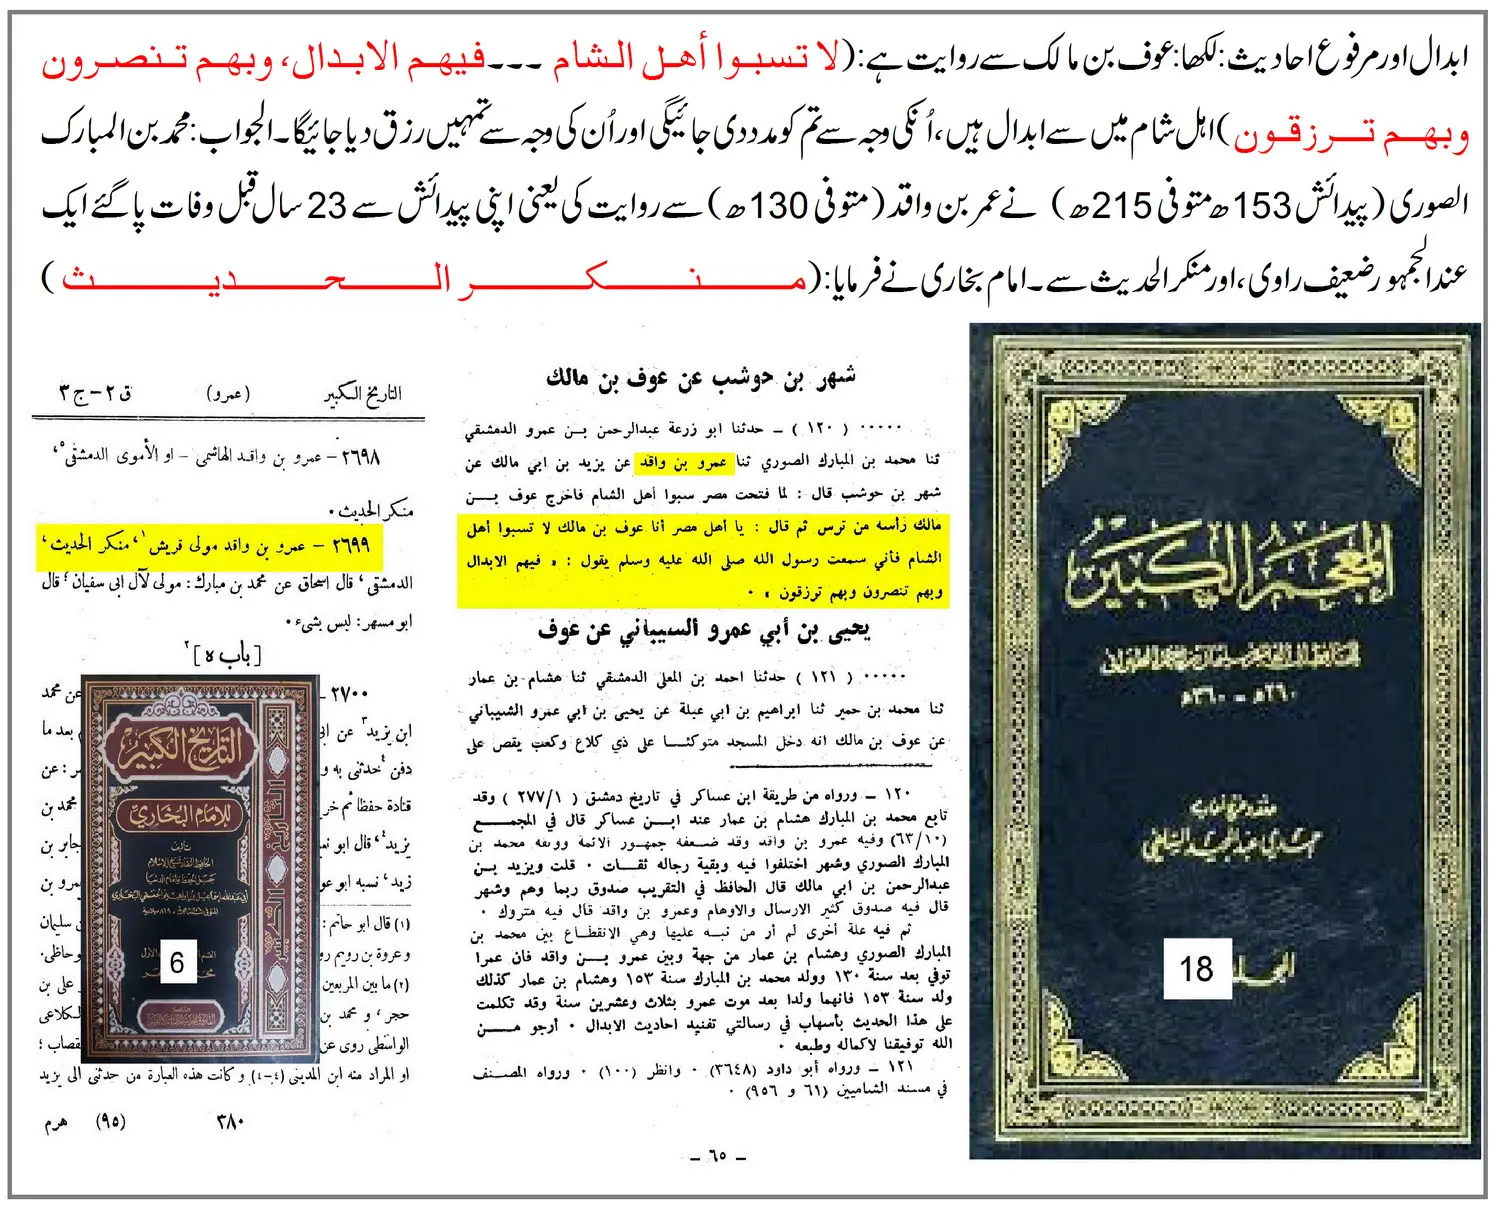 ابدال اور مرفوع احادیث: لکھا: عوف بن مالک سے روایت ہے: (لا تسبوا أهل الشام ---فيهم الابدال، وبهم تنصرون
وبهم ترزقون) اہل شام میں سے ابدال ہیں، اُنکی وجہ سے تم کو مدد دی جائیگی اور اُن کی وجہ سے تمہیں رزق دیا جائیگا۔ الجواب: محمد بن المبارک
الصوری (پیدائش 153ھ متوفی 215ھ) نے عمر بن واقد (متوفی 130ھ) سے روایت کی یعنی اپنی پیدائش سے 23 سال قبل وفات پا گئے ایک
عند الجمہور ضعیف راوی، اور منکر الحدیث سے۔ امام بخاری نے فرمایا: (منكر الحديث)
التاريخ الكبير (عمرو) ق ٢ - ج ٣
٢٦٩٨ - عمرو بن واقد الهاشمى - او الأموى الدمشقى٥،
منكر الحديث .
٢٦٩٩ - عمرو بن واقد مولى قريش١، منكر الحديث،
الدمشقى، قال اسحاق عن محمد بن مبارك: مولى لآل ابى سفيان، قال
ابو مسهر: ليس بشىء .
[ باب ه ]٢
٢٧٠٠ -
عن محمد
ابن يزيد٣ عن
بعد ما
دفن٤ حدثنى به و
: عن
قتادة حفظا ثم
محمد بن
يزيد٤، قال ابو
جابر بن
زيد، نسبه ابو
عمرو بن
(١) قال ابو حاتم:
سليمان
و عروة بن رويم
وحاظى.
(٢) ما بين المربعين
على بن
حجر، و محمد بن
الكلاعى
الواسطى روى عن
القصاب؛
او المراد منه ابن المدينى (٤-٤) و كانت هذه العبارة من حدثنى الى يزيد
٣٨٠ (٩٥) هرم
التاريخ الكبير
للإمام البخاري
تأليف
6
التاريخ الكبير
شهر بن حوشب عن عوف بن مالك
٠٠٠٠٠ ( ١٢٠ ) - حدثنا ابو زرعة عبدالرحمن بن عمرو الدمشقي
ثنا محمد بن المبارك الصوري ثنا عمرو بن واقد عن يزيد بن ابي مالك عن
شهر بن حوشب قال : لما فتحت مصر سبوا أهل الشام فاخرج عوف بن
مالك رأسه من ترس ثم قال : يا أهل مصر أنا عوف بن مالك لا تسبوا أهل
الشام فأني سمعت رسول الله صلى الله عليه وسلم يقول : « فيهم الابدال
وبهم تنصرون وبهم ترزقون » .
يحيى بن أبي عمرو السيباني عن عوف
٠٠٠٠٠ ( ١٢١ ) حدثنا احمد بن المعلى الدمشقي ثنا هشام بن عمار
ثنا محمد بن حمير ثنا ابراهيم بن ابي عبلة عن يحيى بن ابي عمرو الشيباني
عن عوف بن مالك انه دخل المسجد متوكئا على ذي كلاع وكعب يقص على
١٢٠ - ورواه من طريقة ابن عساكر في تاريخ دمشق ( ٢٧٧/١ ) وقد
تابع محمد بن المبارك هشام بن عمار عند ابن عساكر قال في المجمع
(٦٣/١٠) وفيه عمرو بن واقد وقد ضعفه جمهور الائمة ووثقه محمد بن
المبارك الصوري وشهر اختلفوا فيه وبقية رجاله ثقات . قلت ويزيد بن
عبدالرحمن بن ابي مالك قال الحافظ في التقريب صدوق ربما وهم وشهر
قال فيه صدوق كثير الارسال والاوهام وعمرو بن واقد قال فيه متروك .
ثم فيه علة أخرى لم أر من نبه عليها وهي الانقطاع بين محمد بن
المبارك الصوري وهشام بن عمار من جهة وبين عمرو بن واقد فان عمرا
توفي بعد سنة ١٣٠ وولد محمد بن المبارك سنة ١٥٣ وهشام بن عمار كذلك
ولد سنة ١٥٣ فانهما ولدا بعد موت عمرو بثلاث وعشرين سنة وقد تكلمت
على هذا الحديث بأسهاب في رسالتي تفنيد احاديث الابدال . أرجو من
الله توفيقنا لاكماله وطبعه .
١٢١ - ورواه أبو داود (٣٦٤٨) . وانظر (١٠٠) . ورواه المصنف
في مسند الشاميين (٦١ و ٩٥٦) .
- ٦٥ -
المعجم الكبير
٢٦٠ھ - ٣٦٠ھ
حمدي عبد المجيد السلفي
المجلد
18